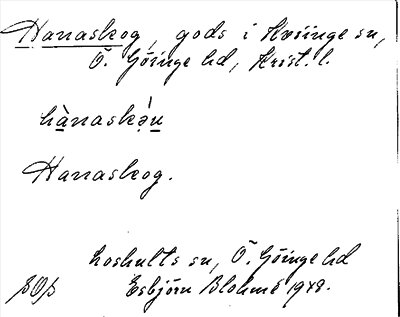 Hanaskog, gods i Kviinge sn,
Ö. Göinge hd, Krist. l.
hànaskə̀u
Hanaskog.
Loshults sn, Ö. Göinge hd
Esbjörn Blohmé 1948.